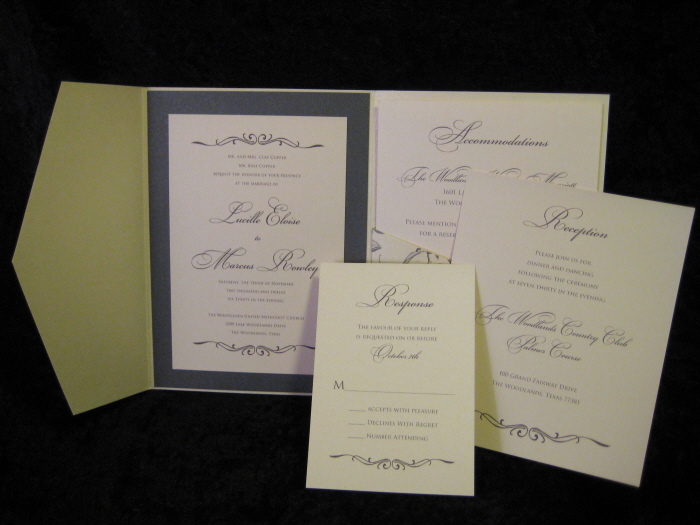 Mr. and Mrs. Clay Cowen
request the honour of your presence
at the marriage of
Lucille Eloise
to
Marcus Rowley
Saturday, the
two thousand and
six thirty in the evening
The Woodlands United Methodist Church
2200 Lake Woodlands Drive
The Woodlands, Texas
Accommodations
The Woodlands
1601 L
The Woo
Please mention
for a reser
Reception
Please join us for
dinner and dancing
following the ceremony
at seven thirty in the evening
The Woodlands Country Club
Palmer Course
100 Grand Fairway Drive
The Woodlands, Texas 77381
Response
The favour of your reply
is requested on or before
October 28th
M
accepts with pleasure
Declines with Regret
Number Attending